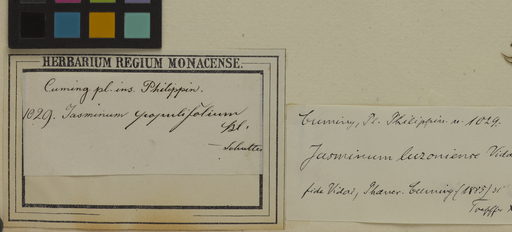 HERBARIUM REGIUM MONACENSE.
Cuming pl. ins. Philippin.
1029. Jasminum populifolium
Bl.
Schultes
Cuming, Pl. Philippin. n. 1029.
Jasminum luzoniense Vida
fide Vidal, Phaner. Cuming (1885)